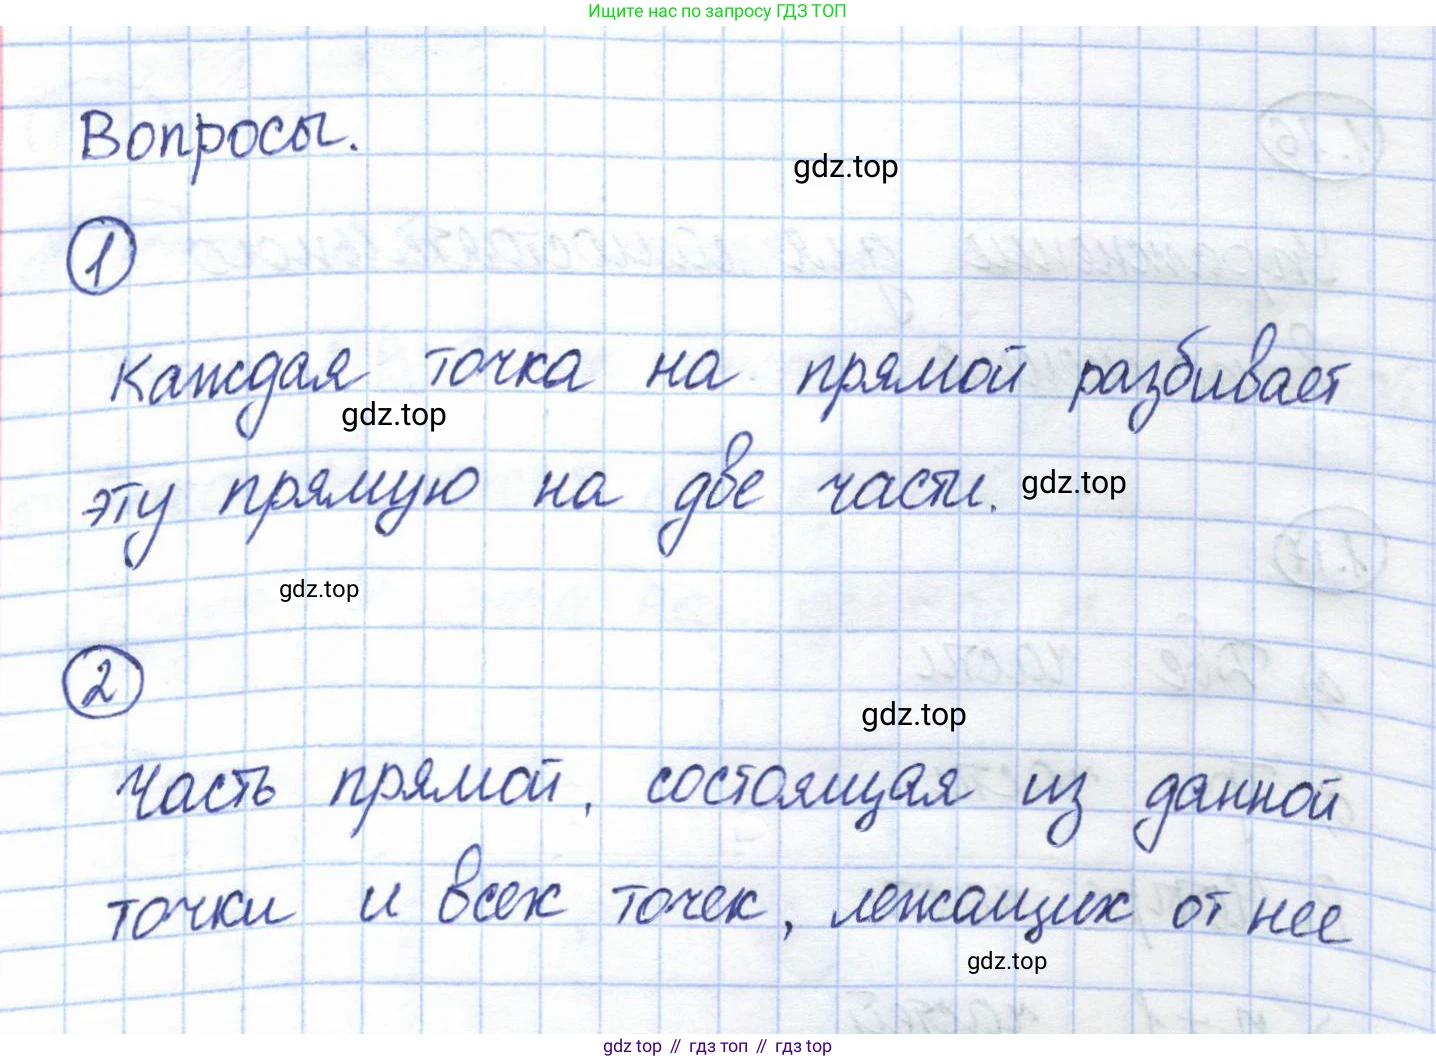 Ищите нас по запросу ГДЗ ТОП
Вопросы.
gdz.top
1
Каждая точка на прямой разбивает
gdz.top
эту прямую на две части.
gdz.top
gdz.top
2
gdz.top
Часть прямой, состоящая из данной
точки и всех точек, лежащих от нее
gdz.top
gdz top // гдз топ // гдз top